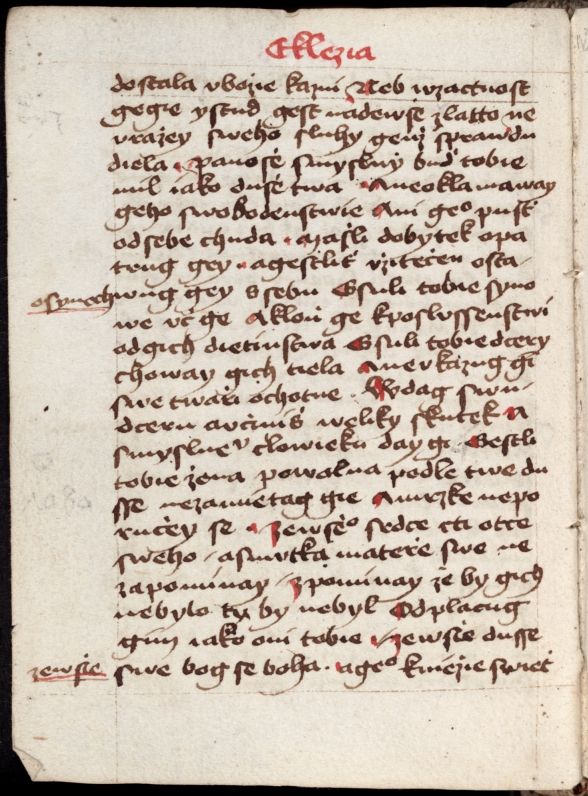 Ekklezia
dostala vbozie kazni Neb wzactnost
gegie ystud gest nadewse zlatto ne
vrazey sweho sluhy genz sprawdu
diela panose smyslny bud tobie
mil iako duse twa Aneoklamaway
geho swobodenstwie Ani geo pust
odsebe chuda azasli dobytek opa
trug gey agestlit vzitecen osta
osynech
wug gey s sebu Gsuli tobie syno
we vc ge Aklon ge kposlussenstwi
odgich dietinstwa Gsuli tobie dcery
choway gich tiela Anevkazug gi
swe twari ochotne Wydag swu
dceru avcinis weliky skutek A
smyslneu clowieku day gi Gestli
tobie zena powolna podle twe du
sse nezamietag gie Amrzke nepo
rucey se zewseo srdce cti otce
sweho asmutka matere swe ne
zapominay zpominay ze by gich
nebylo ty by nebyl Odplacug
gim iako oni tobie zewsie dusse
zewsie
swe bog se boha ageo kniezie swiet